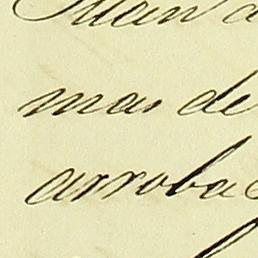 mas de
arroba